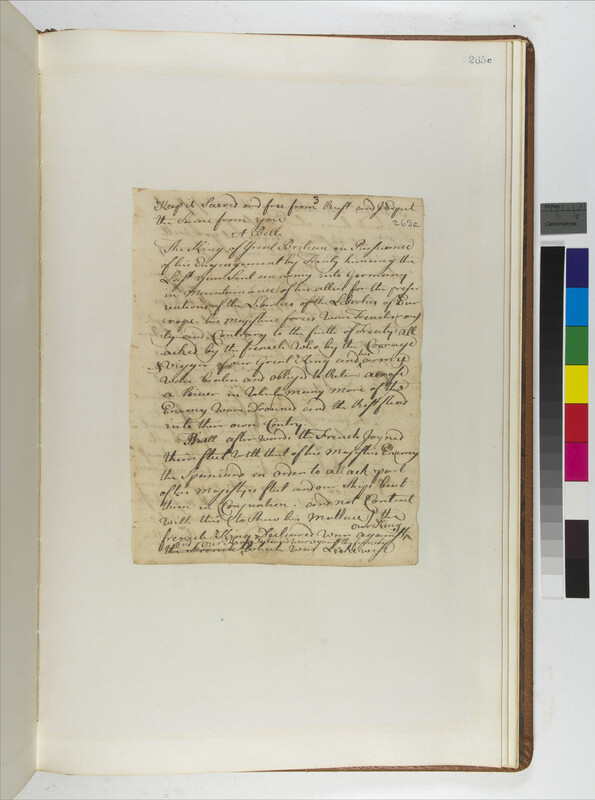 265c
3
Keep it Sacred and free from Rust and I Expect
the Same from you
265c
A Belt
The King of Great Brittain in Pursuance
of his Engagement by Treaty himing the
Last year Sent an army into Germany
in Maintainance of his allies for the prese
rvations of the Liberties of the Liberties of Eu
rope his Majesties forces Were Treacherous
ly and Contrary to the faith of Treaty att
acked by the french Who by the Courage
& Viggor of our Great King and his army
Were beaten and obliged to Retire across
a River in Which many more of the
Enemy Were Drowned and the Rest fled
into their own Contry
That after wards the French Joyned
their fleet With that of his Majesties Enemy
the Spaniards in order to attack part
of his Majestys fleet and our Ships beat
them in Conjunction, and not Content
With this to Shew his Mallace the
our King
french King Declared War against
and our King declared War against the french
the french Which War Likewise